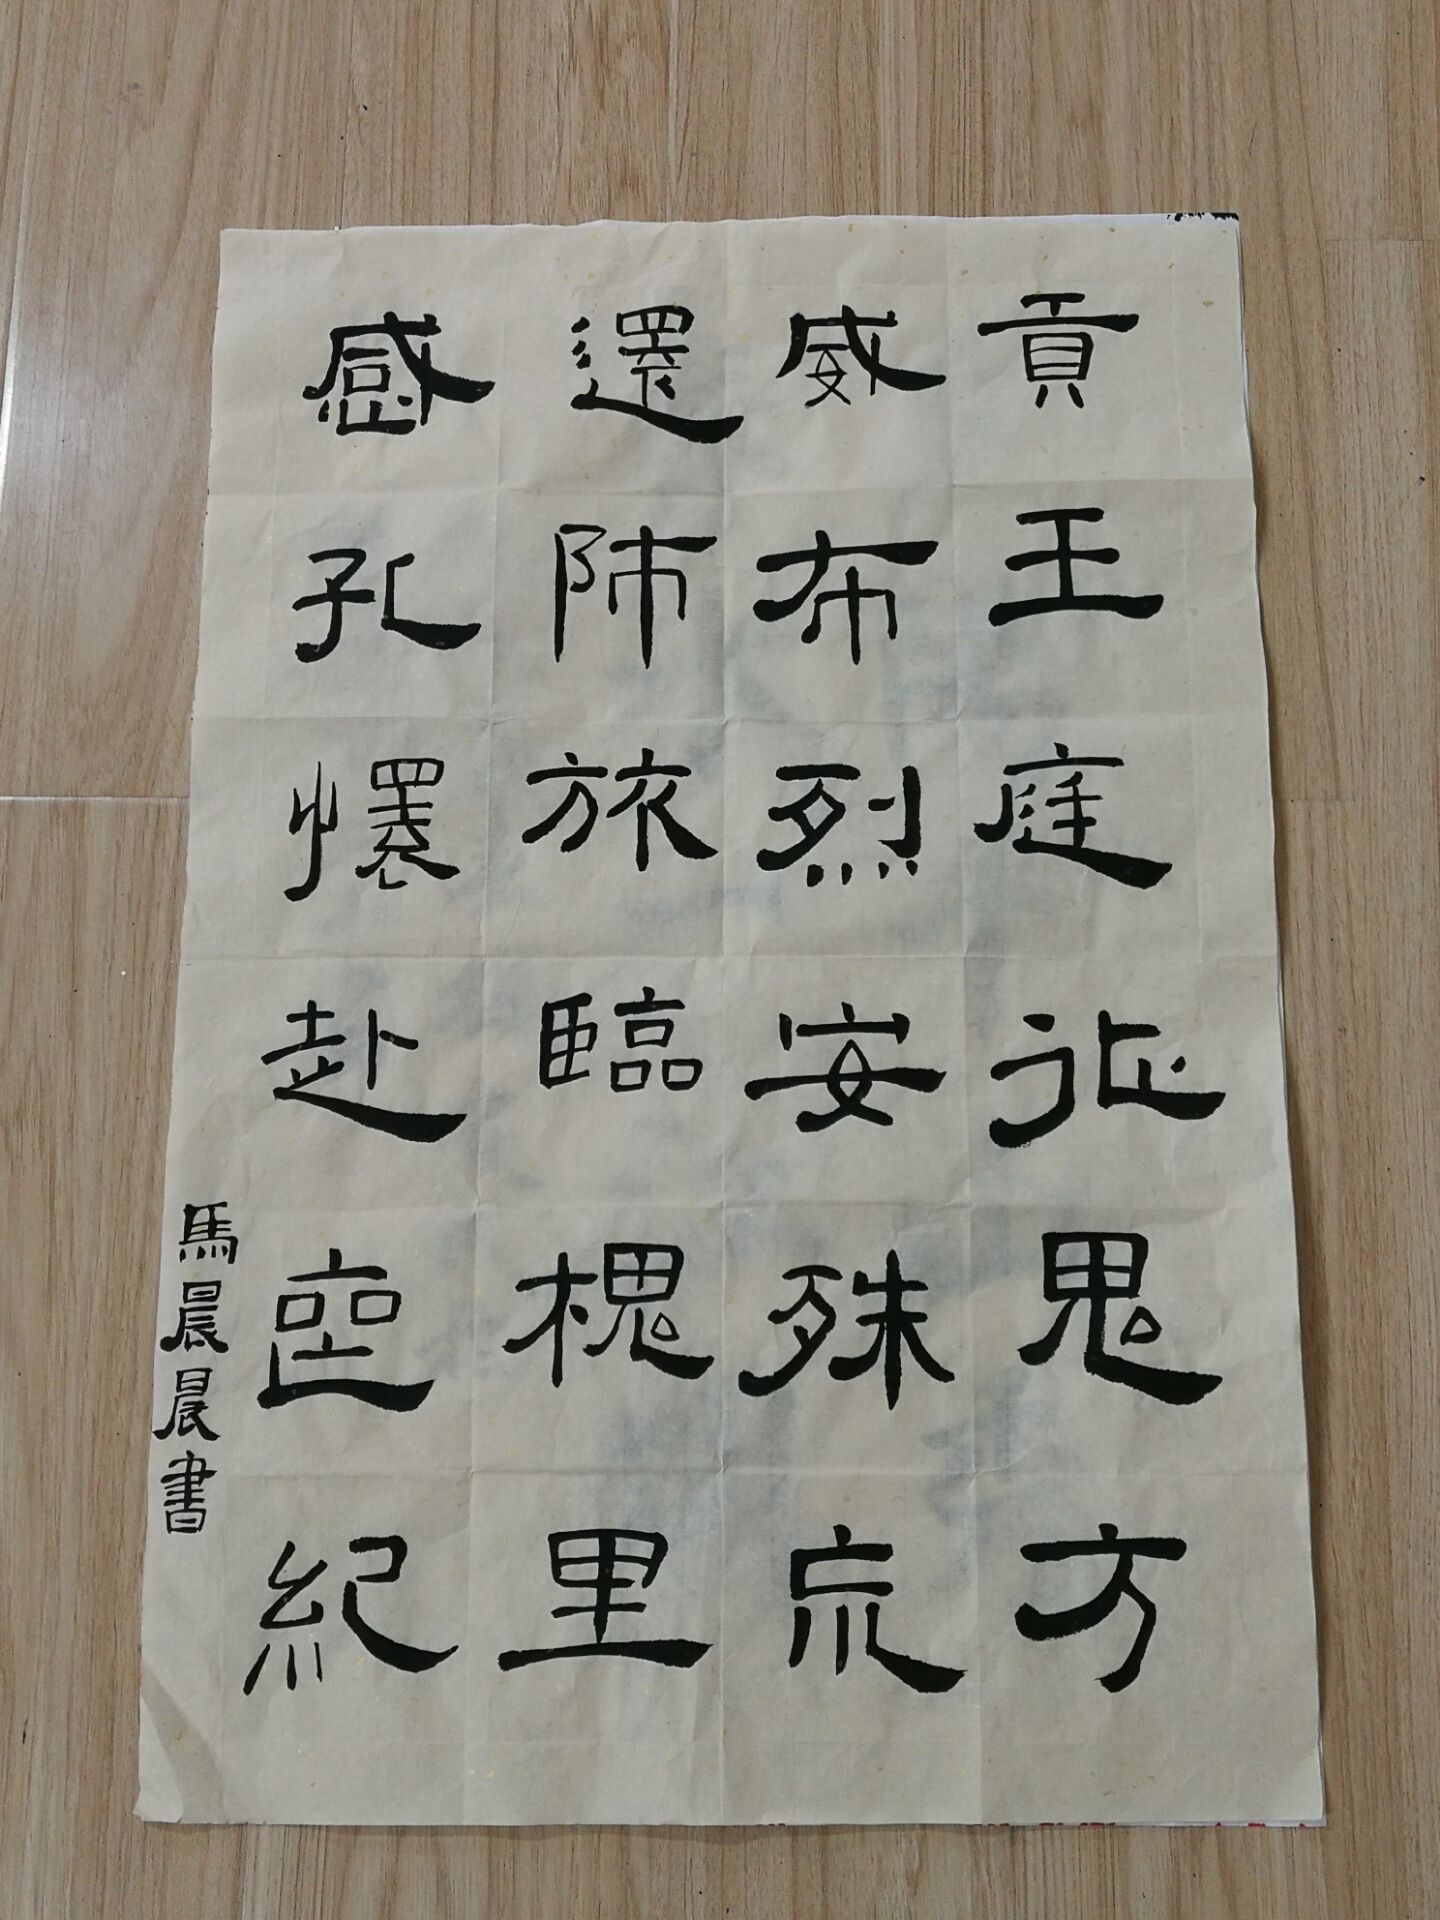 貢王庭征鬼方
威布烈安殊荒
還師旅臨槐里
感孔懷赴喪紀
馬晨晨書